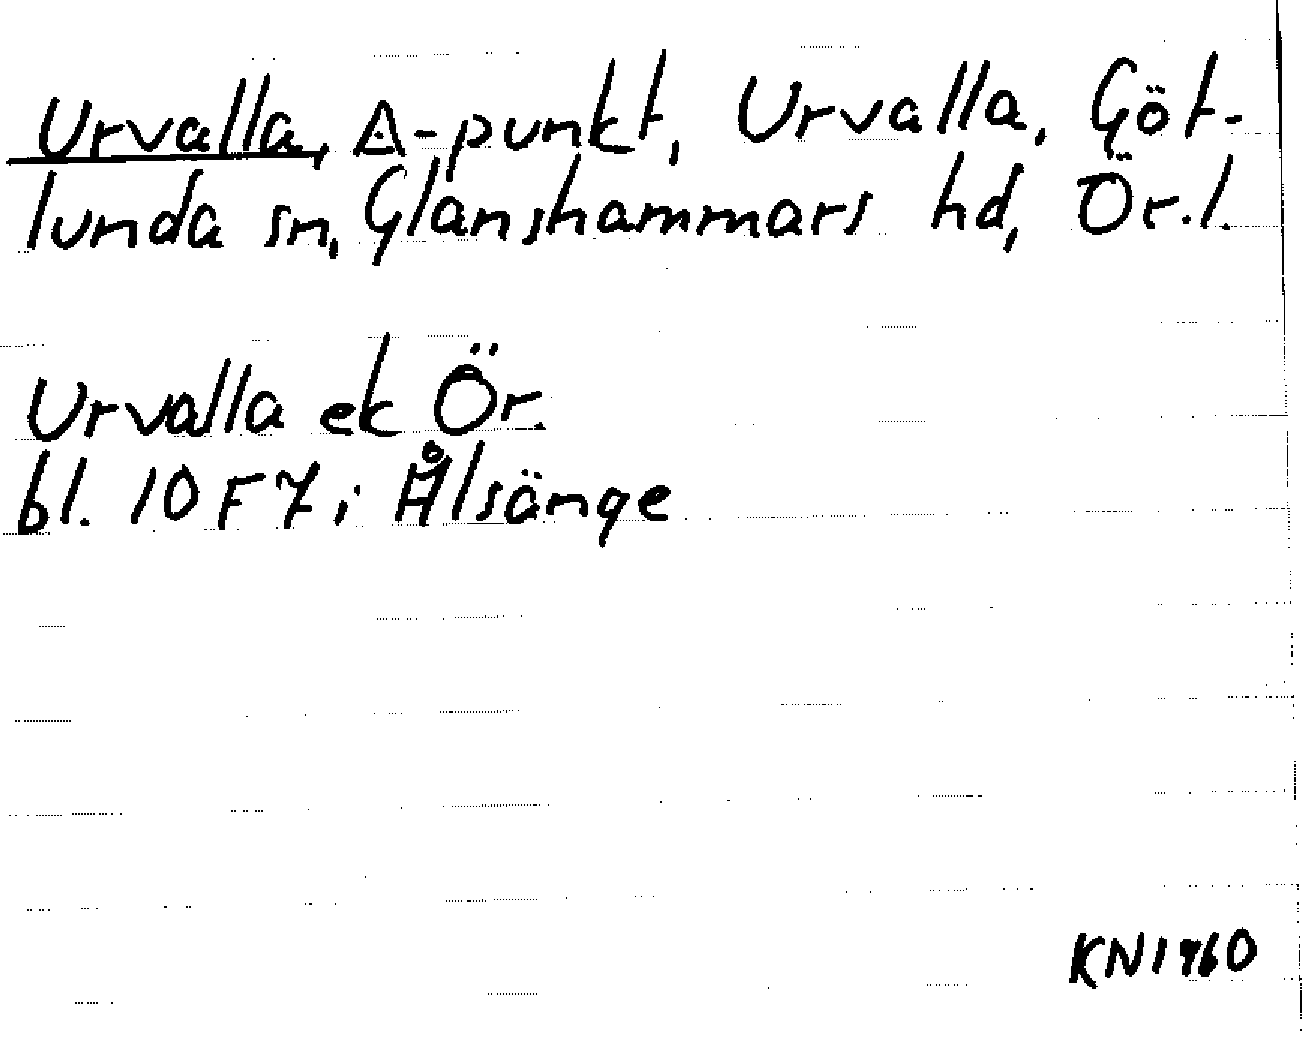 Urvalla, Δ-punkt, Urvalla, Göt-
lunda sn, Glanshammars hd, Ör.l.
Urvalla ek Ör.
bl. 10F7i Ålsänge
KN1960